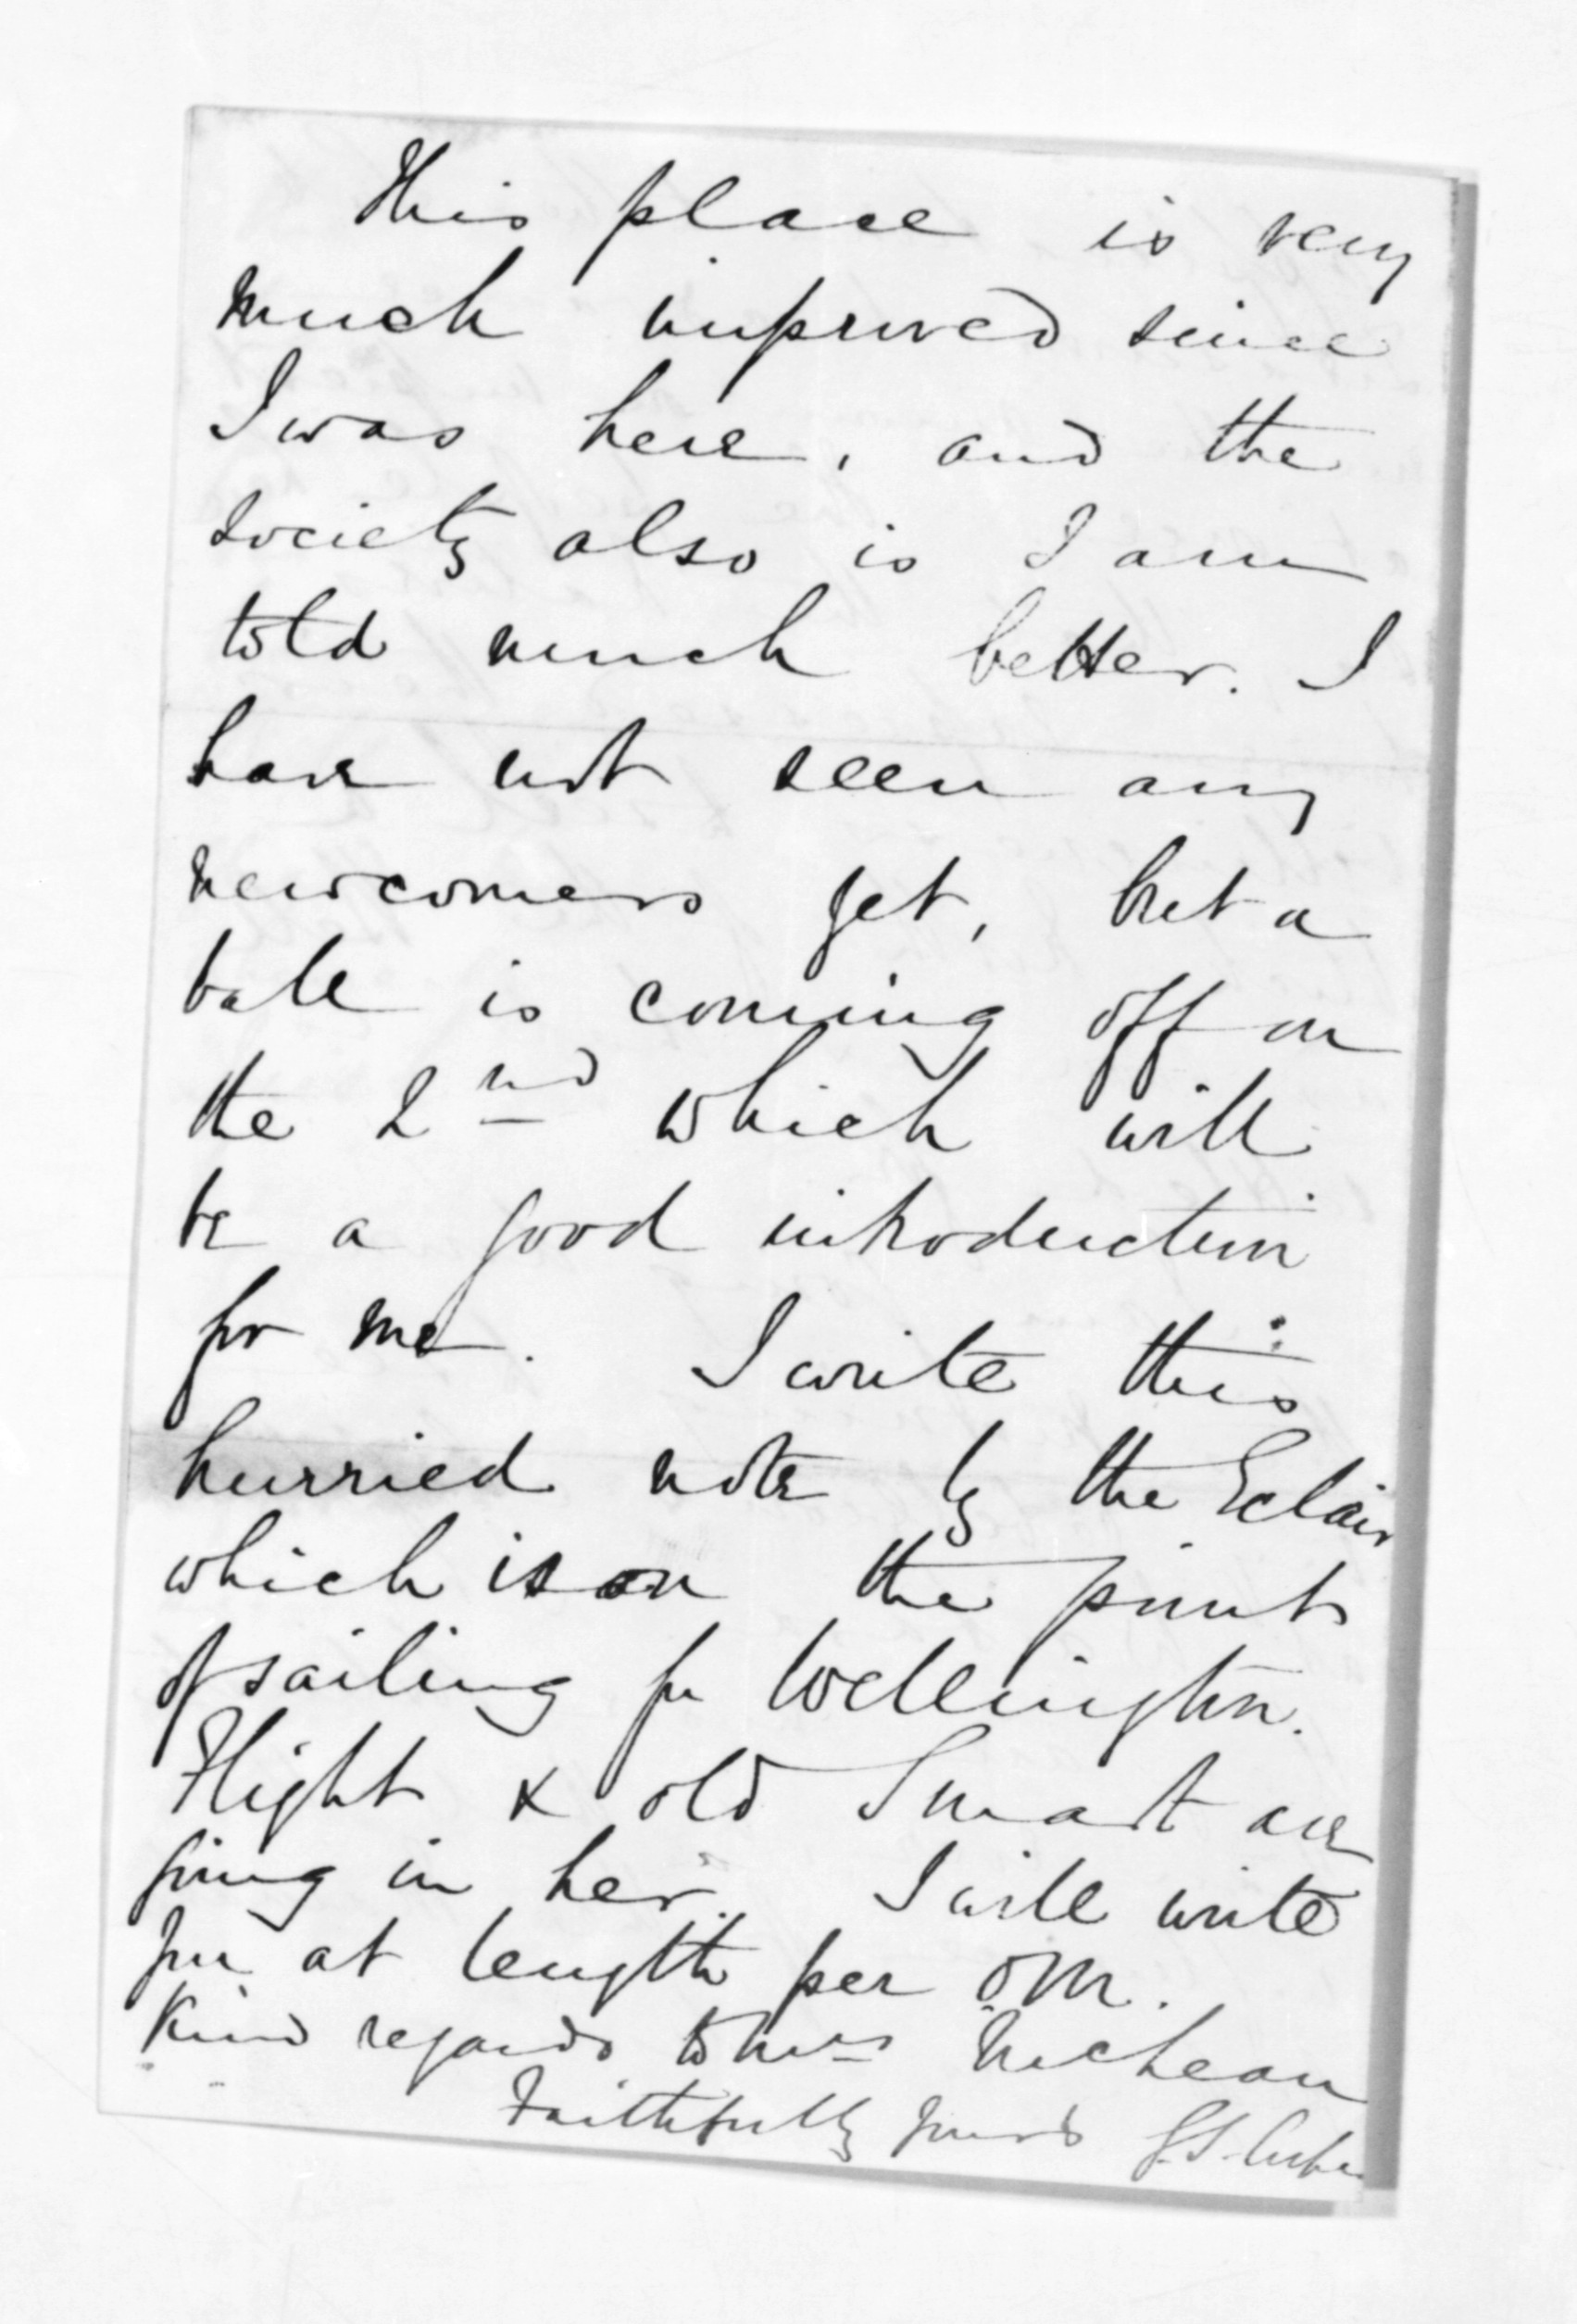 This place is very
much improved since
I was here, and the
society also is I am
told much better. I
have not seen any
newcomers yet, but a
ball is coming off on
the 2nd which will
be a good introduction
for me. I write this
hurried note by the Eclair
which is on the point
of sailing for Wellington.
Flight & old Smart are
going in her. I will write
you at length per OM.
Kind regards to Mrs McLean
Faithfully yours G.S. Cooper